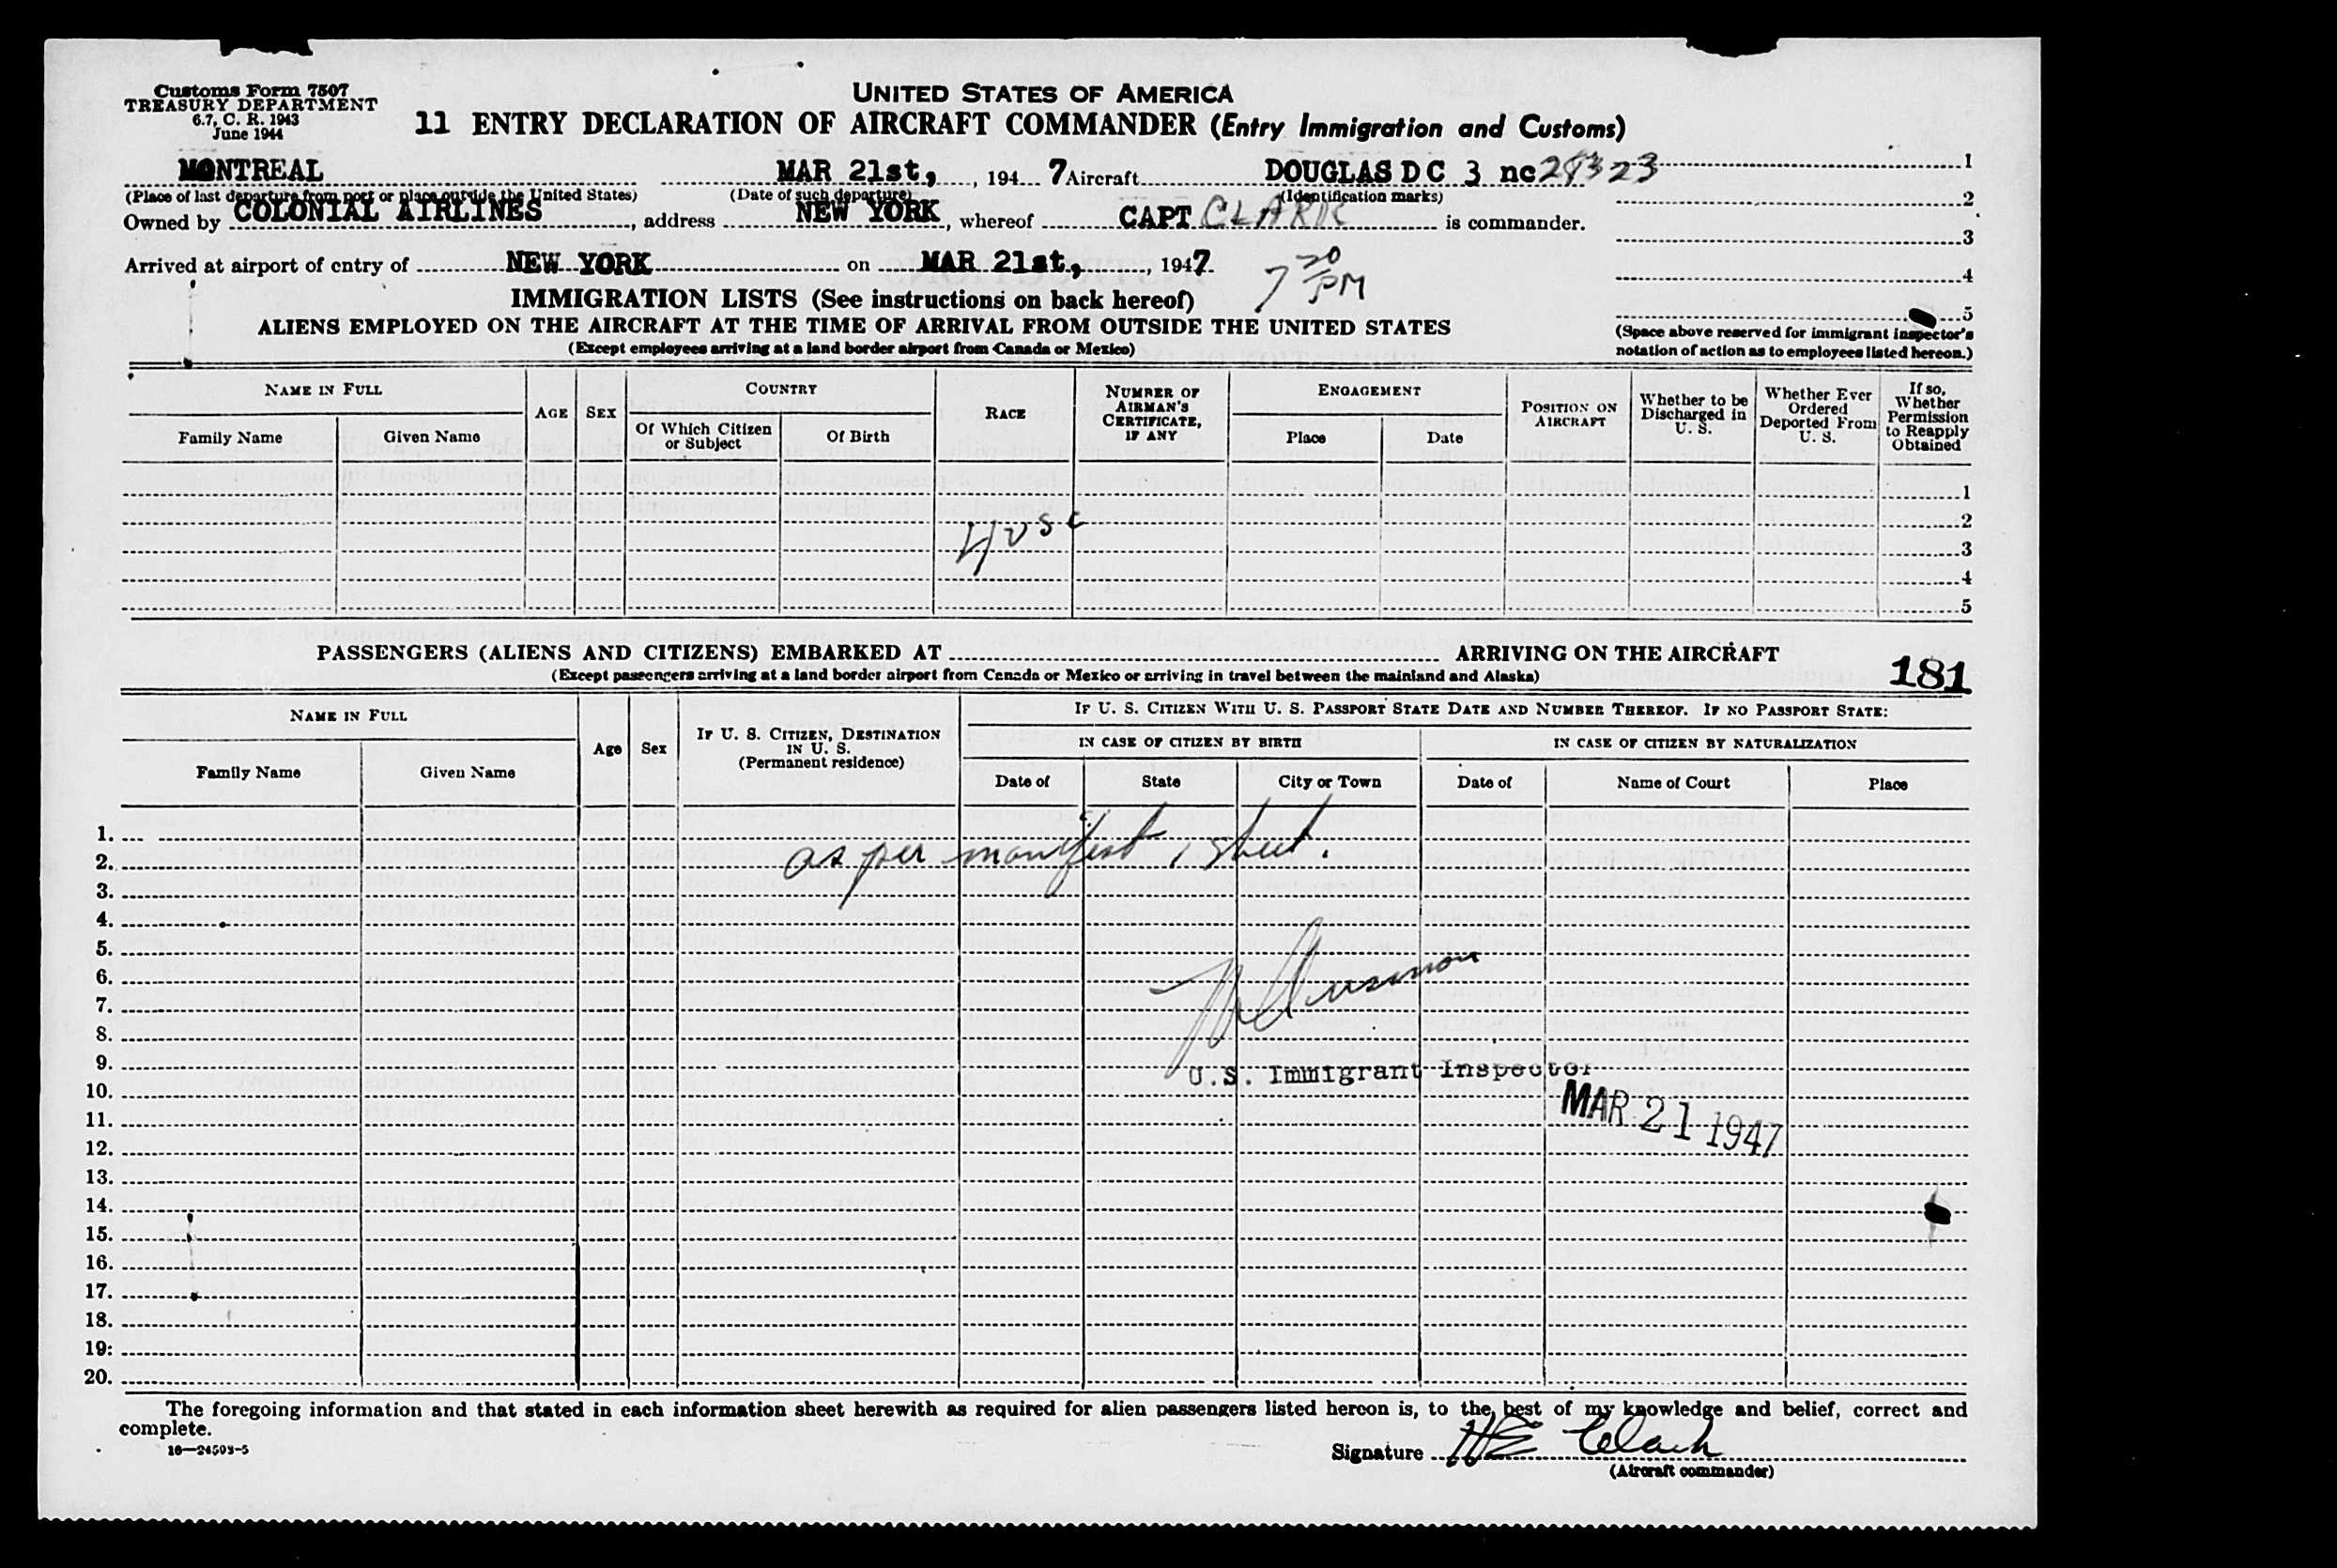 Customs Form 7507
TREASURY DEPARTMENT
6.7, C. R. 1943
June 1944
UNITED STATES OF AMERICA
11 ENTRY DECLARATION OF AIRCRAFT COMMANDER (Entry Immigration and Customs)
MONTREAL MAR 21st, , 194 7 Aircraft DOUGLAS D C 3 nc 28323 1
(Place of last departure from port or place outside the United States) (Date of such departure) (Identification marks) 2
Owned by COLONIAL AIRLINES, address NEW YORK, whereof CAPT CLARK is commander.
3
Arrived at airport of entry of NEW YORK on MAR 21st, , 1947. 7 30 PM 4
IMMIGRATION LISTS (See instructions on back hereof)
5
ALIENS EMPLOYED ON THE AIRCRAFT AT THE TIME OF ARRIVAL FROM OUTSIDE THE UNITED STATES
(Except employees arriving at a land border airport from Canada or Mexico)
(Space above reserved for immigrant inspector's
notation of action as to employees listed hereon.)
NAME IN FULL
Family Name Given Name
AGE SEX
COUNTRY
Of Which Citizen or Subject Of Birth
RACE
NUMBER OF AIRMAN'S CERTIFICATE, IF ANY
ENGAGEMENT
Place Date
POSITION ON AIRCRAFT
Whether to be Discharged in U. S.
Whether Ever Ordered Deported From U. S.
If so, Whether Permission to Reapply Obtained
1
2
4 USC
3
4
5
PASSENGERS (ALIENS AND CITIZENS) EMBARKED AT ARRIVING ON THE AIRCRAFT
(Except passengers arriving at a land border airport from Canada or Mexico or arriving in travel between the mainland and Alaska)
181
NAME IN FULL
Family Name Given Name
Age Sex
IF U. S. CITIZEN, DESTINATION IN U. S.
(Permanent residence)
IF U. S. CITIZEN WITH U. S. PASSPORT STATE DATE AND NUMBER THEREOF. IF NO PASSPORT STATE:
IN CASE OF CITIZEN BY BIRTH IN CASE OF CITIZEN BY NATURALIZATION
Date of State City or Town Date of Name of Court Place
1.
2. as per manifest 1 sheet.
3.
4.
5.
6.
7.
8.
9. U.S. Immigrant Inspector
10.
11. MAR 21 1947
12.
13.
14.
15.
16.
17.
18.
19:
20.
The foregoing information and that stated in each information sheet herewith as required for alien passengers listed hereon is, to the best of my knowledge and belief, correct and
complete.
16—24503-5
Signature HE Clark
(Aircraft commander)